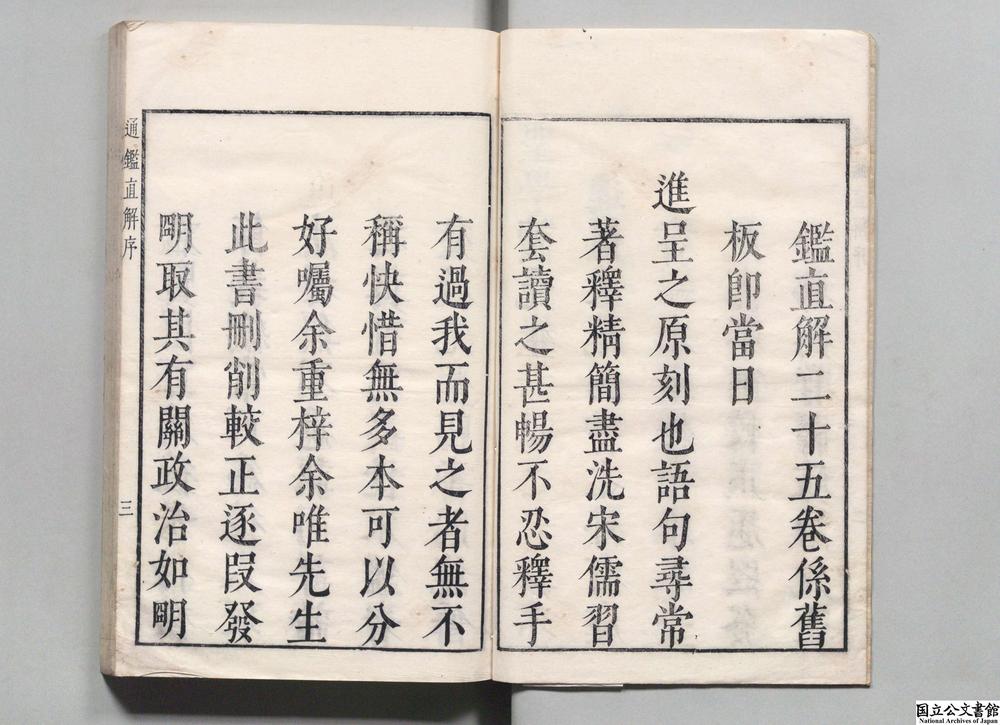 鑑直解二十五卷係舊
板卽當日
進呈之原刻也語句尋常
著釋精簡盡洗宋儒習
套讀之甚暢不忍釋手
有過我而見之者無不
稱快惜無多本可以分
好囑余重梓余唯先生
此書刪削較正逐段發
明取其有關政治如明
通鑑直解序
三
国立公文書館
National Archives of Japan